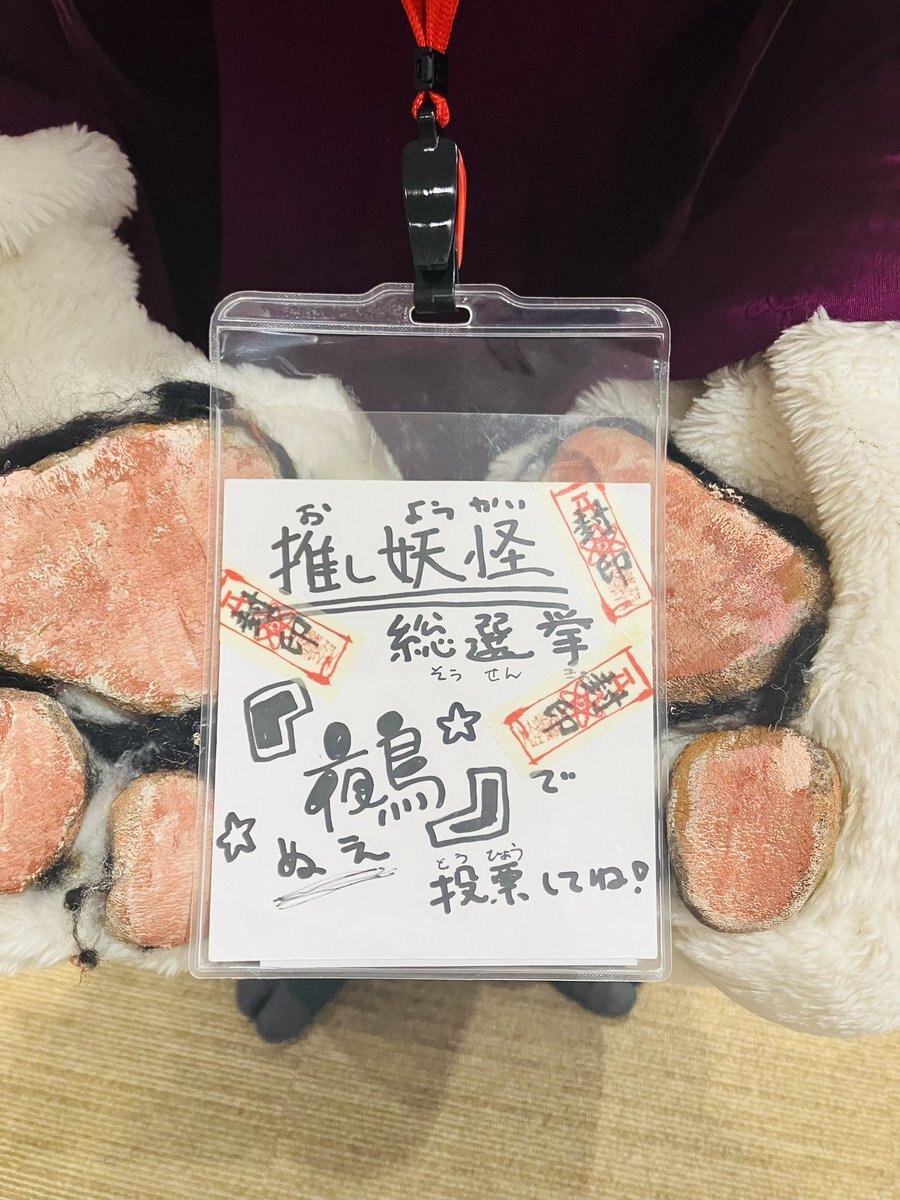 おし ようかい
推し妖怪
総選挙
そうせん
『鵺』で
ぬえ
とうひょう
投票してね!
封印
封印
封印